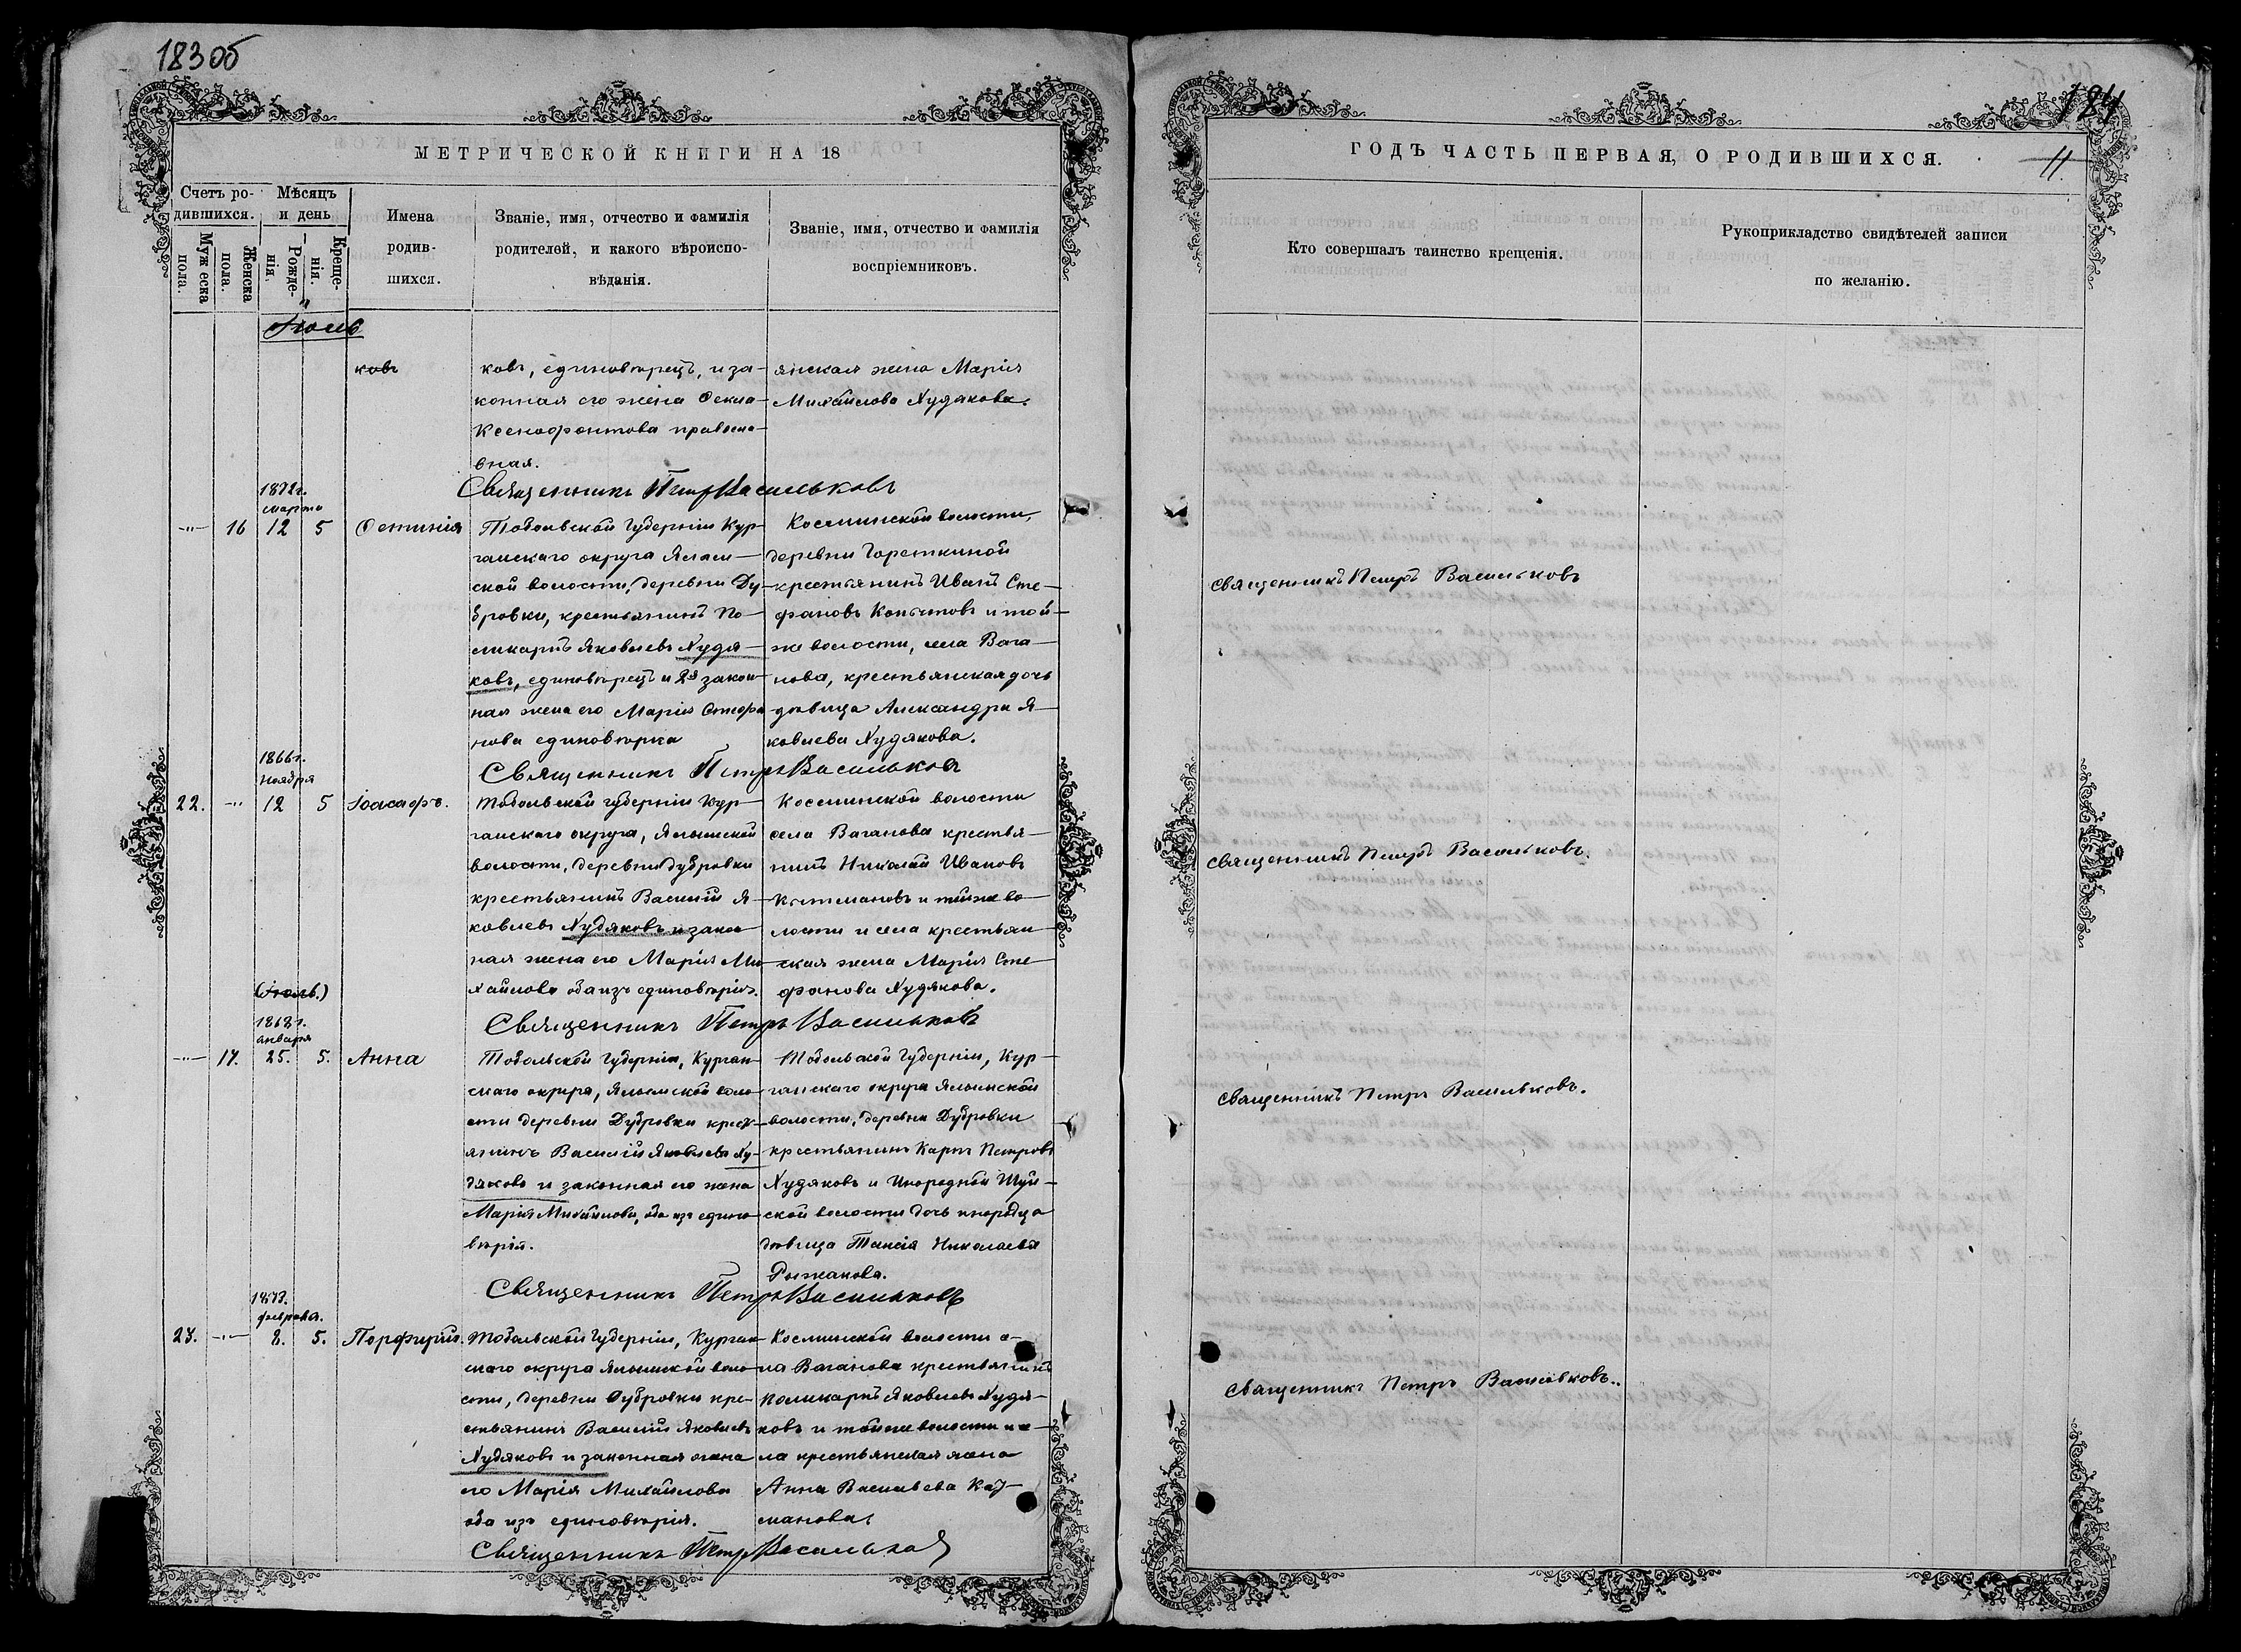 183 об
МЕТРИЧЕСКОЙ КНИГИ НА 18
Счетъ ро-
дившихся.
Муж еска
пола.
Женска
пола.
Мѣсяцъ
и день
Рожде-
нія.
Креще-
нія.
Имена
родив-
шихся.
Званіе, имя, отчество и фамилія
родителей, и какого вѣроиспо-
вѣданія.
Званіе, имя, отчество и фамилія
воспріемниковъ.
Іюль
ковъ
ковъ, единовѣрецъ, и за-
конная его жена Фекла
Ксенофонтова правосла-
вная.
янская жена Марія
Михайлова Худякова.
Священникъ Петръ Васильковъ
1872г.
марта
16 12 5 Фотинія
Тобольской Губерніи Кур-
ганскаго округа Ялым-
ской волости, деревни Ду-
бровки, крестьянинъ По-
ликарпъ Яковлевъ Худя-
ковъ, единовѣрецъ и 2я закон-
ная жена его Марія Стефа
нова единовѣрка
Космынской волости,
деревни
крестьянинъ Иванъ Сте-
фановъ Копытовъ и той-
же волости, села Вага-
нова, крестьянская дочь
дѣвица Александра Я-
ковлева Худякова.
Священникъ Петръ Васильковъ
1866г.
ноября
22. 12 5 Іоасафъ.
Тобольской губерніи Кур-
ганскаго округа, Ялымской
волости, деревни Дубровки
крестьянинъ Василій Я-
ковлевъ Худяковъ и закон
ная жена его Марія Ми-
хайлова оба изъ единовѣрія.
Космынской волости
села Ваганова крестья-
нинъ Николай Ивановъ
и тойже во-
лости и села крестьян
ская жена Марія Сте-
фанова Худякова.
Священникъ Петръ Васильковъ
(Іюль.)
1868г.
января
17. 25. 5. Анна
Тобольской Губерніи, Курган-
скаго округа, Ялымской воло-
сти деревни Дубровки крест-
янинъ Василій Яковлевъ Ху-
дяковъ и законная его жена
Марія Михайлова, оба изъ едино
вѣрія.
Тобольской Губерніи, Кур-
ганскаго округа Ялымской
волости, деревни Дубровки
крестьянинъ Карпъ Петровъ
Худяковъ и Инородной Шуй-
ской волости дочь инородца
дѣвица Таисія Николаева
Рыжакова.
Священникъ Петръ Васильковъ
1873.
февраля.
23. 8. 5. Порфирій.
Тобольской Губерніи, Курган-
скаго округа Ялымской воло-
сти, деревни Дубровки кре-
стьянинъ Василій Яковлевъ
Худяковъ и законная жена
его Марія Михайлова
оба изъ единовѣрія.
Космынской волости се-
ла Ваганова крестьянинъ
Поликарпъ Яковлевъ Худя-
ковъ и тойже волости и се-
ла крестьянская жена
Анна Васильева
Священникъ Петръ Васильковъ
184
ГОДЪ ЧАСТЬ ПЕРВАЯ, О РОДИВШИХСЯ.
11.
Кто совершалъ таинство крещенія.
Рукоприкладство свидѣтелей записи
по желанію.
священникъ Петръ Васильковъ
священникъ Петръ Васильковъ.
священникъ Петръ Васильковъ.
священникъ Петръ Васильковъ..